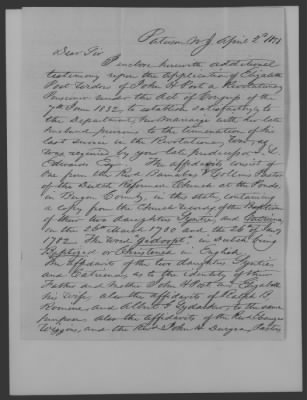 Paterson N J April 2d
Dear Sir
I enclose herewith additional
testimony upon the application of Elizabeth
Post Widow of John H Post a Revolutionary
Pensioner under the Act of Congress of the
7th June 1832, to establish satisfactorily to
the Department, her marriage with her late
husband previous to the termination of his
last service in the Revolutionary War, as
was required by your late predecessor J. L.
Edwards Esqr. The affidavits consist of
one from the Revd Barnabas V Collins Pastor
of the Dutch Reformed Church at the Ponds,
in Bergen County, in this state, containing
a copy from the Church records of the Baptism
of their two daughters and Catrina,
on the 26th March 1780 and the 26th of
1782. The word "gedoopt" in Dutch being
Baptized or Christened in English.
The affidavits of the two daughters
and Catrina, as to the identity of their
Father and Mother John H Post and Elizabeth
his wife; also the affidavits of Ralph B
Romaine, and Albert to the same
purpose. Also the affidavits of the Revd
and the Revd John H Duryea, Pastors